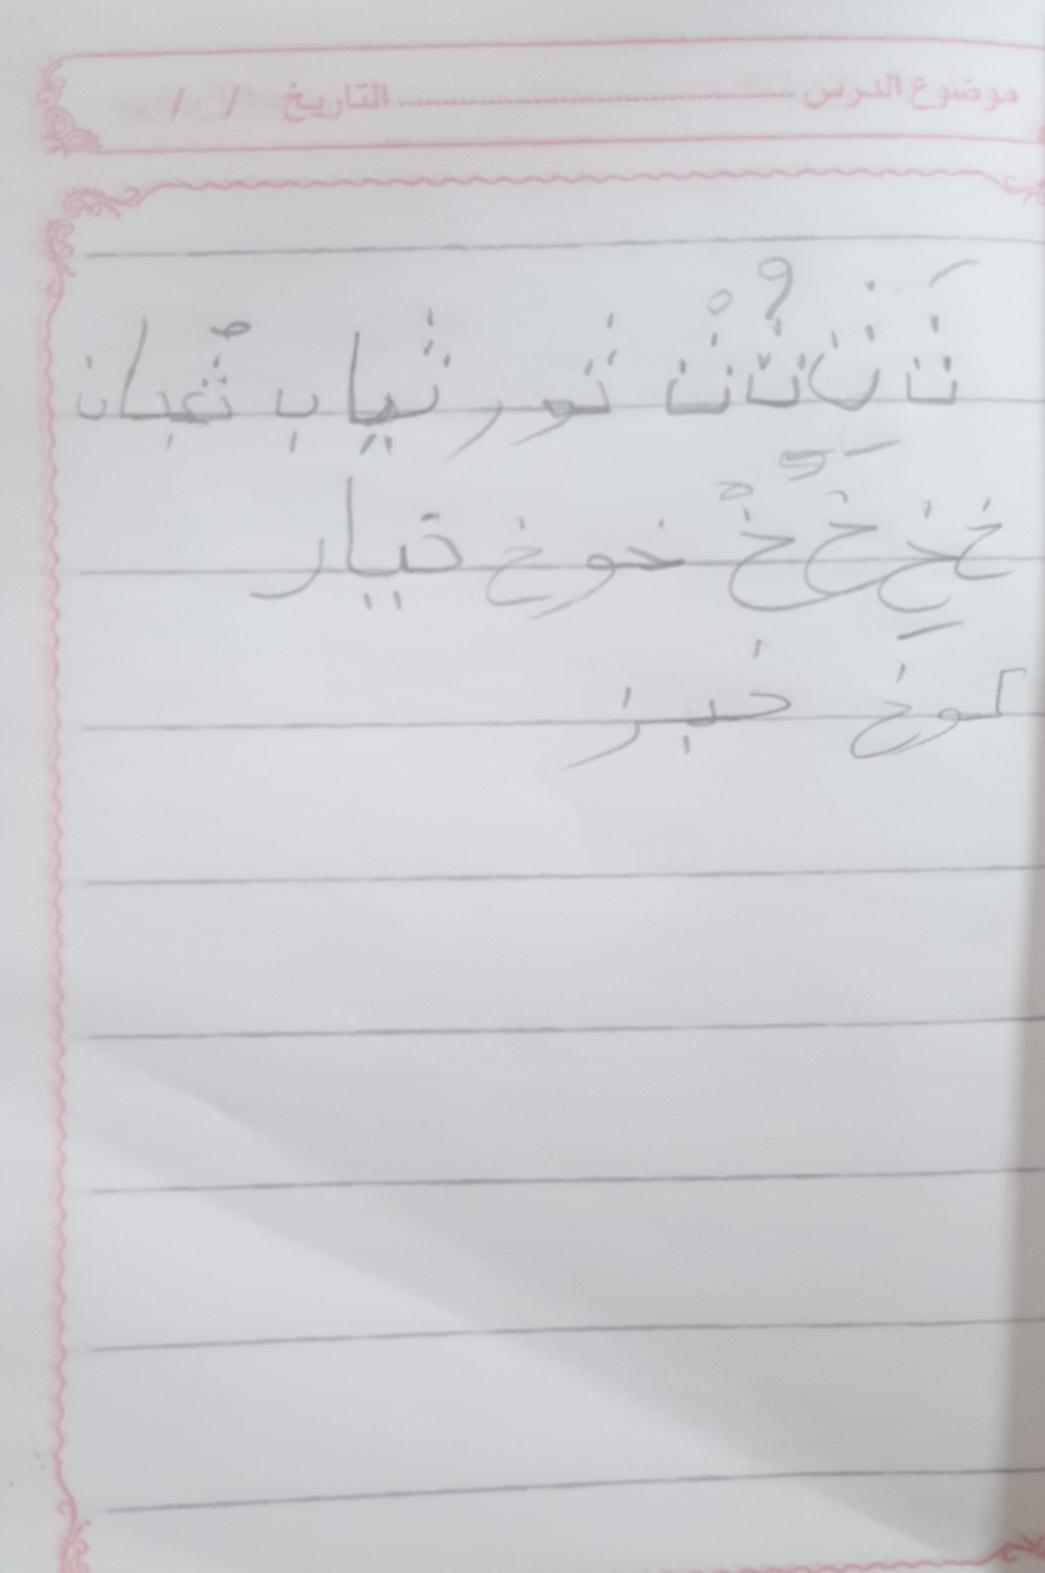 موضوع الدرس ............ التاريخ / /
ثَ ثِ ثُ ثْ ثور ثياب ثعبان
خَ خِ خُ خْ خوخ خيار
كوخ خبز